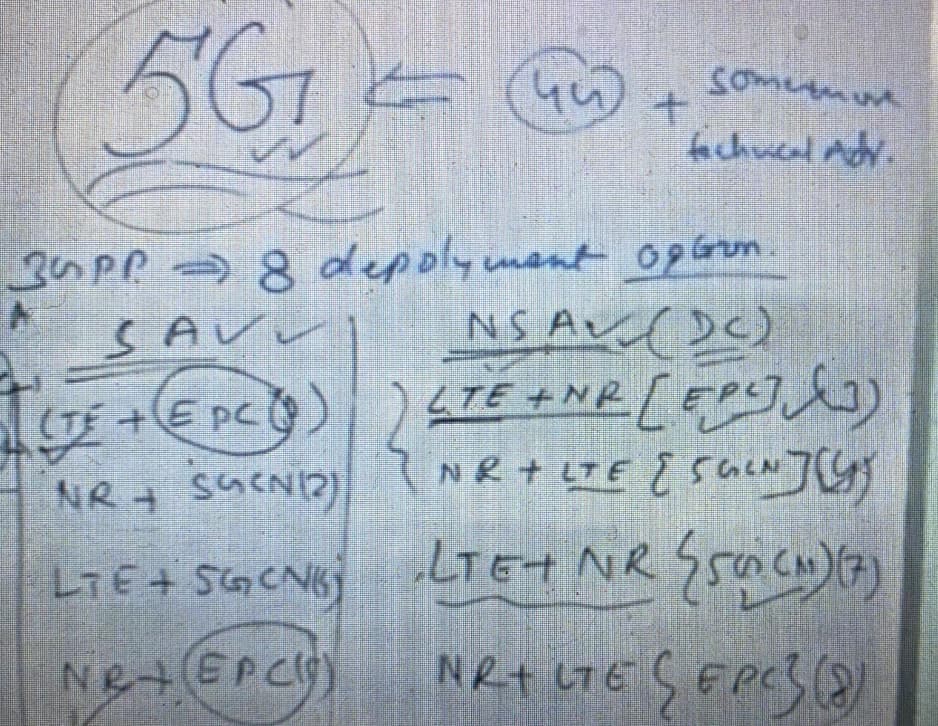 5G ⇐ 4G + some more
technical Adv.
3GPP ⇒ 8 depolyment option.
SA ✓✓
NSA ✓ (DC)
LTE + EPC(1)
LTE + NR [EPC] (3)
NR + 5GCN(2)
NR + LTE {5GCN](4)
LTE + 5GCN(5)
LTE + NR {5GCN)(7)
NR + EPC(6)
NR + LTE {EPC}(8)